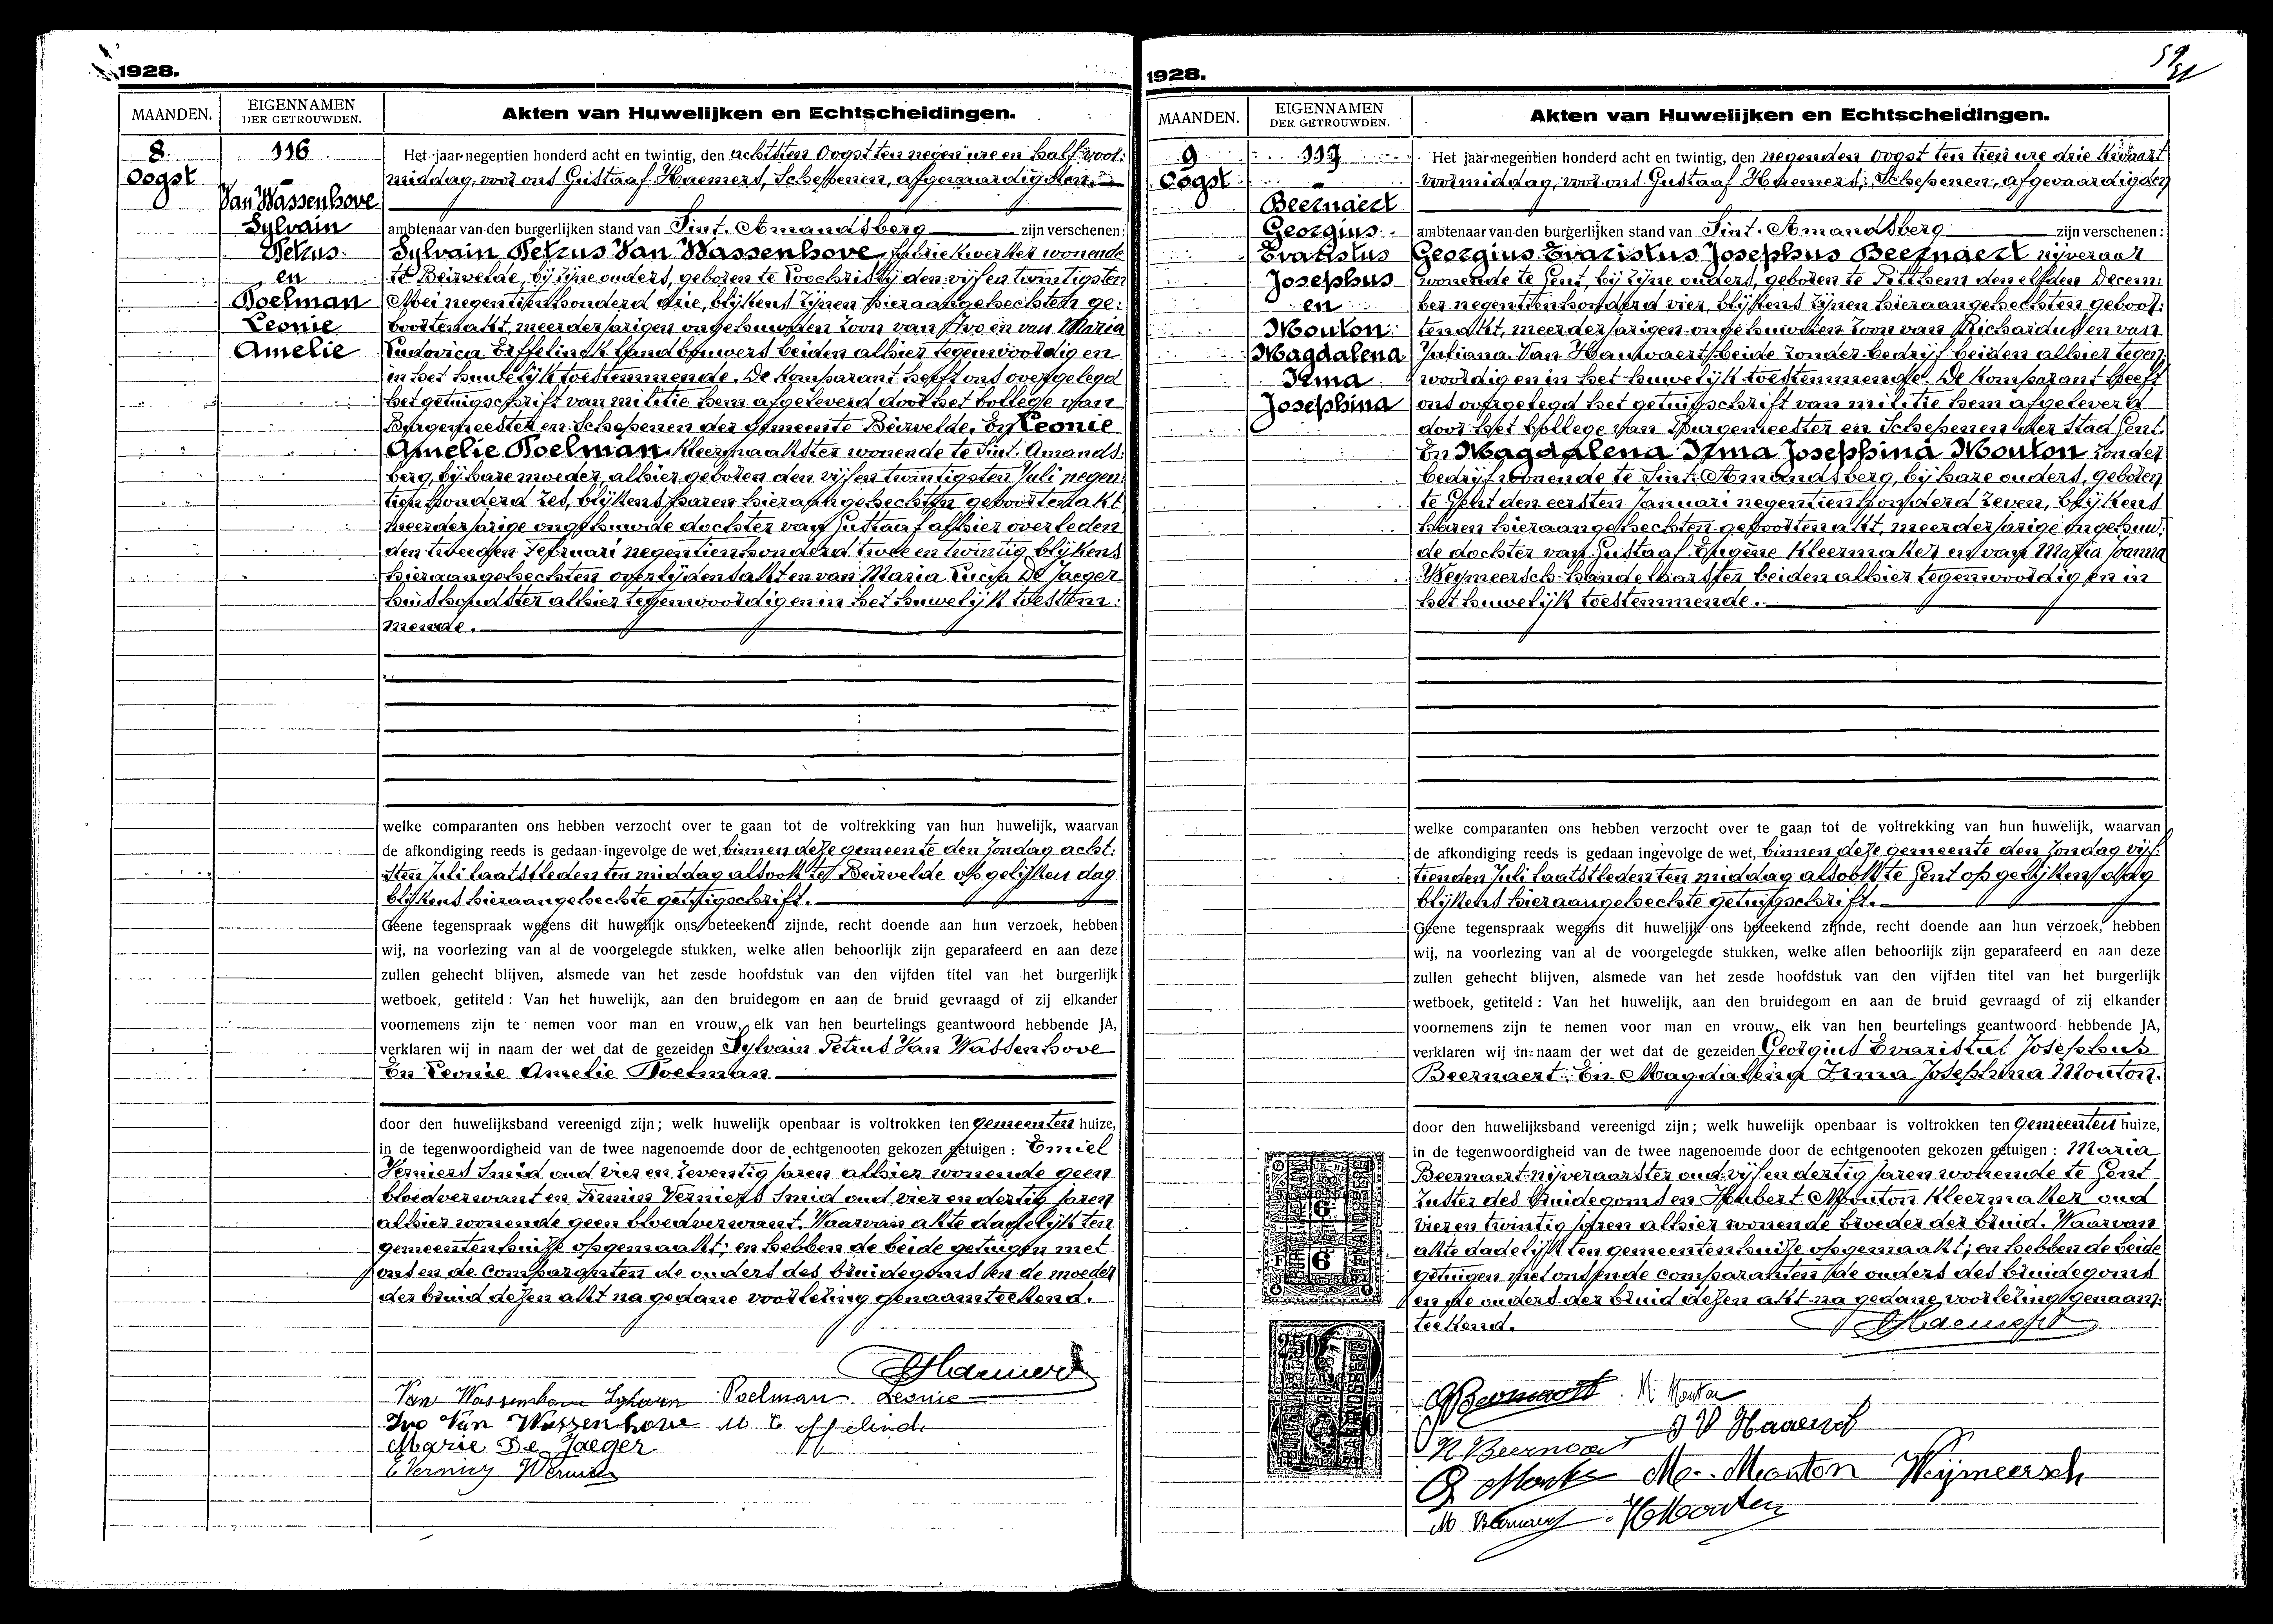 1928.
MAANDEN.
EIGENNAMEN
DER GETROUWDEN.
Akten van Huwelijken en Echtscheidingen.
8
Oogst
116
Van Wassenhove
Sylvain
Petrus
en
Poelman
Leonie
Amelie
Het jaar negentien honderd acht en twintig, den achtsten Oogst ten negen ure en half voor:
middag, voor ons Gustaaf Haemers, Schepenen, afgevaardigden
ambtenaar van den burgerlijken stand van Sint. Amandsberg zijn verschenen:
Sylvain Petrus Van Wassenhove, fabriekwerker wonende
te Beirvelde, bij zijne ouders, geboren te Loochristij den vijf en twintigsten
Mei negentienhonderd drie, blijkens zijnen hieraangehechten ge:
boortenakt, meerderjarigen ongehuwden zoon van Ivo en van Maria
Ludovica Effelinck landbouwers beiden alhier tegenwoordig en
in het huwelijk toestemmende. De komparant heeft ons overgelegd
het getuigschrift van militie hem afgeleverd door het College van
Burgemeester en Schepenen der gemeente Beirvelde. En Leonie
Amelie Poelman kleermaakster wonende te Sint. Amands:
berg, bij hare moeder, alhier geboren den vijf en twintigsten Juli negen:
tienhonderd zes, blijkens haren hieraangehechten geboortenakt
meerderjarige ongehuwde dochter van Gustaaf alhier overleden
den tweeden Februari negentienhonderd twee en twintig blijkens
hieraangehechten overlijdensakt en van Maria Lucia De Jaeger
huishoudster alhier tegenwoordig en in het huwelijk toestem:
mende.
welke comparanten ons hebben verzocht over te gaan tot de voltrekking van hun huwelijk, waarvan
de afkondiging reeds is gedaan ingevolge de wet, binnen deze gemeente den Zondag acht:
sten Juli laatstleden ten middag alsook te Beirvelde op gelijken dag
blijkens hieraangehechte getuigschrift.
Geene tegenspraak wegens dit huwelijk ons beteekend zijnde, recht doende aan hun verzoek, hebben
wij, na voorlezing van al de voorgelegde stukken, welke allen behoorlijk zijn geparafeerd en aan deze
zullen gehecht blijven, alsmede van het zesde hoofdstuk van den vijfden titel van het burgerlijk
wetboek, getiteld : Van het huwelijk, aan den bruidegom en aan de bruid gevraagd of zij elkander
voornemens zijn te nemen voor man en vrouw, elk van hen beurtelings geantwoord hebbende JA,
verklaren wij in naam der wet dat de gezeiden Sylvain Petrus Van Wassenhove
En Leonie Amelie Poelman
door den huwelijksband vereenigd zijn; welk huwelijk openbaar is voltrokken ten gemeenten huize,
in de tegenwoordigheid van de twee nagenoemde door de echtgenooten gekozen getuigen : Emiel
Verniers smid oud vier en zeventig jaren alhier wonende geen
bloedverwant en Firmin Verniers smid oud vier en dertig jaren
alhier wonende geen bloedverwant. Waarvan akte dadelijk ten
gemeentenhuize opgemaakt; en hebben de beide getuigen met
ons en de comparanten de ouders des bruidegoms en de moeder
der bruid dezen akt na gedane voorlezing genaamteekend.
GHaemers
Van Wassenhove Sylvain Poelman Leonie
Ivo Van Wassenhove M. Effelinck
Marie De Jaeger
E Verniers Verniers
1928.
MAANDEN.
EIGENNAMEN
DER GETROUWDEN.
Akten van Huwelijken en Echtscheidingen.
9
Oogst
117
Beernaert
Georgius
Evaristus
Josephus
en
Mouton
Magdalena
Irma
Josephina
Het jaar negentien honderd acht en twintig, den negenden Oogst ten tien ure drie kwaart
voormiddag, voor ons Gustaaf Haemers, Schepenen, afgevaardigden
ambtenaar van den burgerlijken stand van Sint. Amandsberg zijn verschenen:
Georgius Evaristus Josephus Beernaert nijveraar
wonende te Gent, bij zijne ouders, geboren te Pitthem den elfden Decem:
ber negentienhonderd vier, blijkens zijnen hieraangehechten geboor:
tenakt, meerderjarigen ongehuwden zoon van Richardus en van
Juliana Van Hauwaert beide zonder bedrijf beiden alhier tegen:
woordig en in het huwelijk toestemmende. De komparant heeft
ons overgelegd het getuigschrift van militie hem afgeleverd
door het College van Burgemeester en Schepenen der stad Gent.
En Magdalena Irma Josephina Mouton zonder
bedrijf wonende te Sint. Amandsberg, bij hare ouders, geboren
te Gent den eersten Januari negentienhonderd zeven, blijkens
haren hieraangehechten geboortenakt, meerderjarige ongehuw:
de dochter van Gustaaf Eugène kleermaker en van Maria Joanna
Weijmeersch handelaarster beiden alhier tegenwoordig en in
het huwelijk toestemmende.
welke comparanten ons hebben verzocht over te gaan tot de voltrekking van hun huwelijk, waarvan
de afkondiging reeds is gedaan ingevolge de wet, binnen deze gemeente den Zondag vijf:
tienden Juli laatstleden ten middag alsook te Gent op gelijken dag
blijkens hieraangehechte getuigschrift.
Geene tegenspraak wegens dit huwelijk ons beteekend zijnde, recht doende aan hun verzoek, hebben
wij, na voorlezing van al de voorgelegde stukken, welke allen behoorlijk zijn geparafeerd en aan deze
zullen gehecht blijven, alsmede van het zesde hoofdstuk van den vijfden titel van het burgerlijk
wetboek, getiteld : Van het huwelijk, aan den bruidegom en aan de bruid gevraagd of zij elkander
voornemens zijn te nemen voor man en vrouw, elk van hen beurtelings geantwoord hebbende JA,
verklaren wij in naam der wet dat de gezeiden Georgius Evaristus Josephus
Beernaert. En Magdalena Irma Josephina Mouton.
door den huwelijksband vereenigd zijn; welk huwelijk openbaar is voltrokken ten gemeenten huize,
in de tegenwoordigheid van de twee nagenoemde door de echtgenooten gekozen getuigen : Maria
Beernaert nijveraarster oud vijf en dertig jaren wonende te Gent
zuster des bruidegoms en Hubert Mouton kleermaker oud
vier en twintig jaren alhier wonende broeder der bruid. Waarvan
akte dadelijk ten gemeentenhuize opgemaakt; en hebben de beide
getuigen met ons en de comparanten de ouders des bruidegoms
en de ouders der bruid dezen akt na gedane voorlezing genaam:
teekend.
GHaemers
GBeernaert M. Mouton
J V Hauwaert
R Beernaert
G Mouton M. Mouton Weijmeersch
M Beernaert HMouton